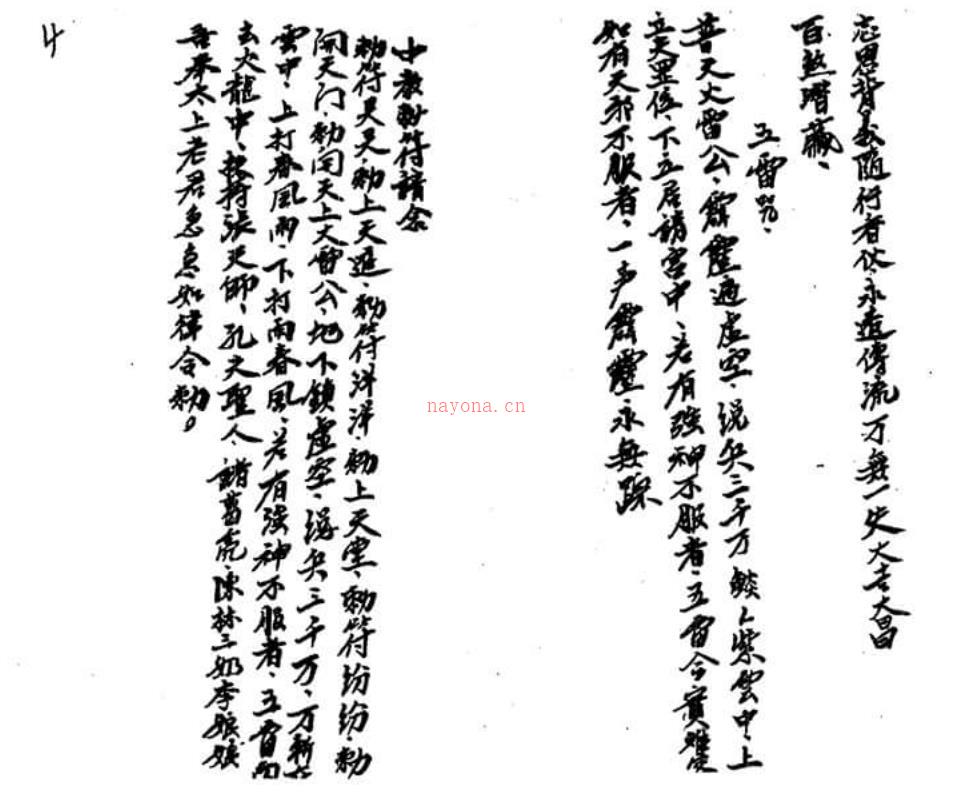 忘恩背義隨行者伏、永遠傳流万無一失大吉大昌
百煞潜藏、
五雷咒、
普天大雷公、霹靂遍虚空、統兵三千万 紫雲中、上
立天罡位、下立居諸宫中、若有强神不服者、五雷令
如有天邪不服者、一声霹靂永無踪
中教勅符請念
勅符天天、勅上天 、勅符洋洋、勅上天堂、勅符纷纷、勅
開天门、勅開天上大雷公、地下鎮虚空、统兵三千万、万
雲中、上打春風雨、下打雨春風、若有强神不服者、五雷
去火龍中、扶持張天师、孔夫聖人、諸葛亮、陳林三奶李娘娘
吾奉太上老君急急如律令勅。
4
nayona.cn